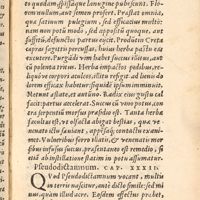 to quodam, spissaque lanugine pubescunt.
Florem nullum, aut semen profert. Præstat omnia,
quæ satiuum pulegium, sed efficacius multo:
nam non potu modo, sed appositu quoque, aut
suffitu, defunctos partus eiicit. Produnt in Creta
capras sagittis percussas, huius herbæ pastu ea
excutere. Purgādi vim habet succus illitus, aut cū
polenta tritus. Herba impacta podibus, re-
liquóve corpori aculeos, illitu refigit. ad lienis do
lorem efficax habetur: siquidē ipsum imminuit.
Metunt æstate, et autūno. Radix eius gustu cal
facit: partus accelerat. Succus cū vino bibitur,
contra serpentū morsus præsidio est. Tanta herbæ
facultas est, vt olfactu abigat bestias, quæ ve-
nenum iaculantur, appositu, contactu exanimet.
Vulneribus ferro illatis, et venenatis mor-
sibus infusus succus, præsentaneo est remedio, si
ab instillatione statim in potu assumatur.
Pseudodictamnum. CAP. XXXII.
Quod Pseudodictamnum vocant, multis
in terris nascitur, ante dicto simile: sed mi
nus, quam illud acre. Eosdem effectus præbet,